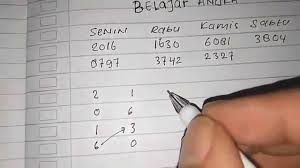 BELAJAR ANGKA
SENIN Rabu Kamis Sabtu
2016 1630 6081 3804
0797 3742 2327
2 1
0 6
1 3
6 0